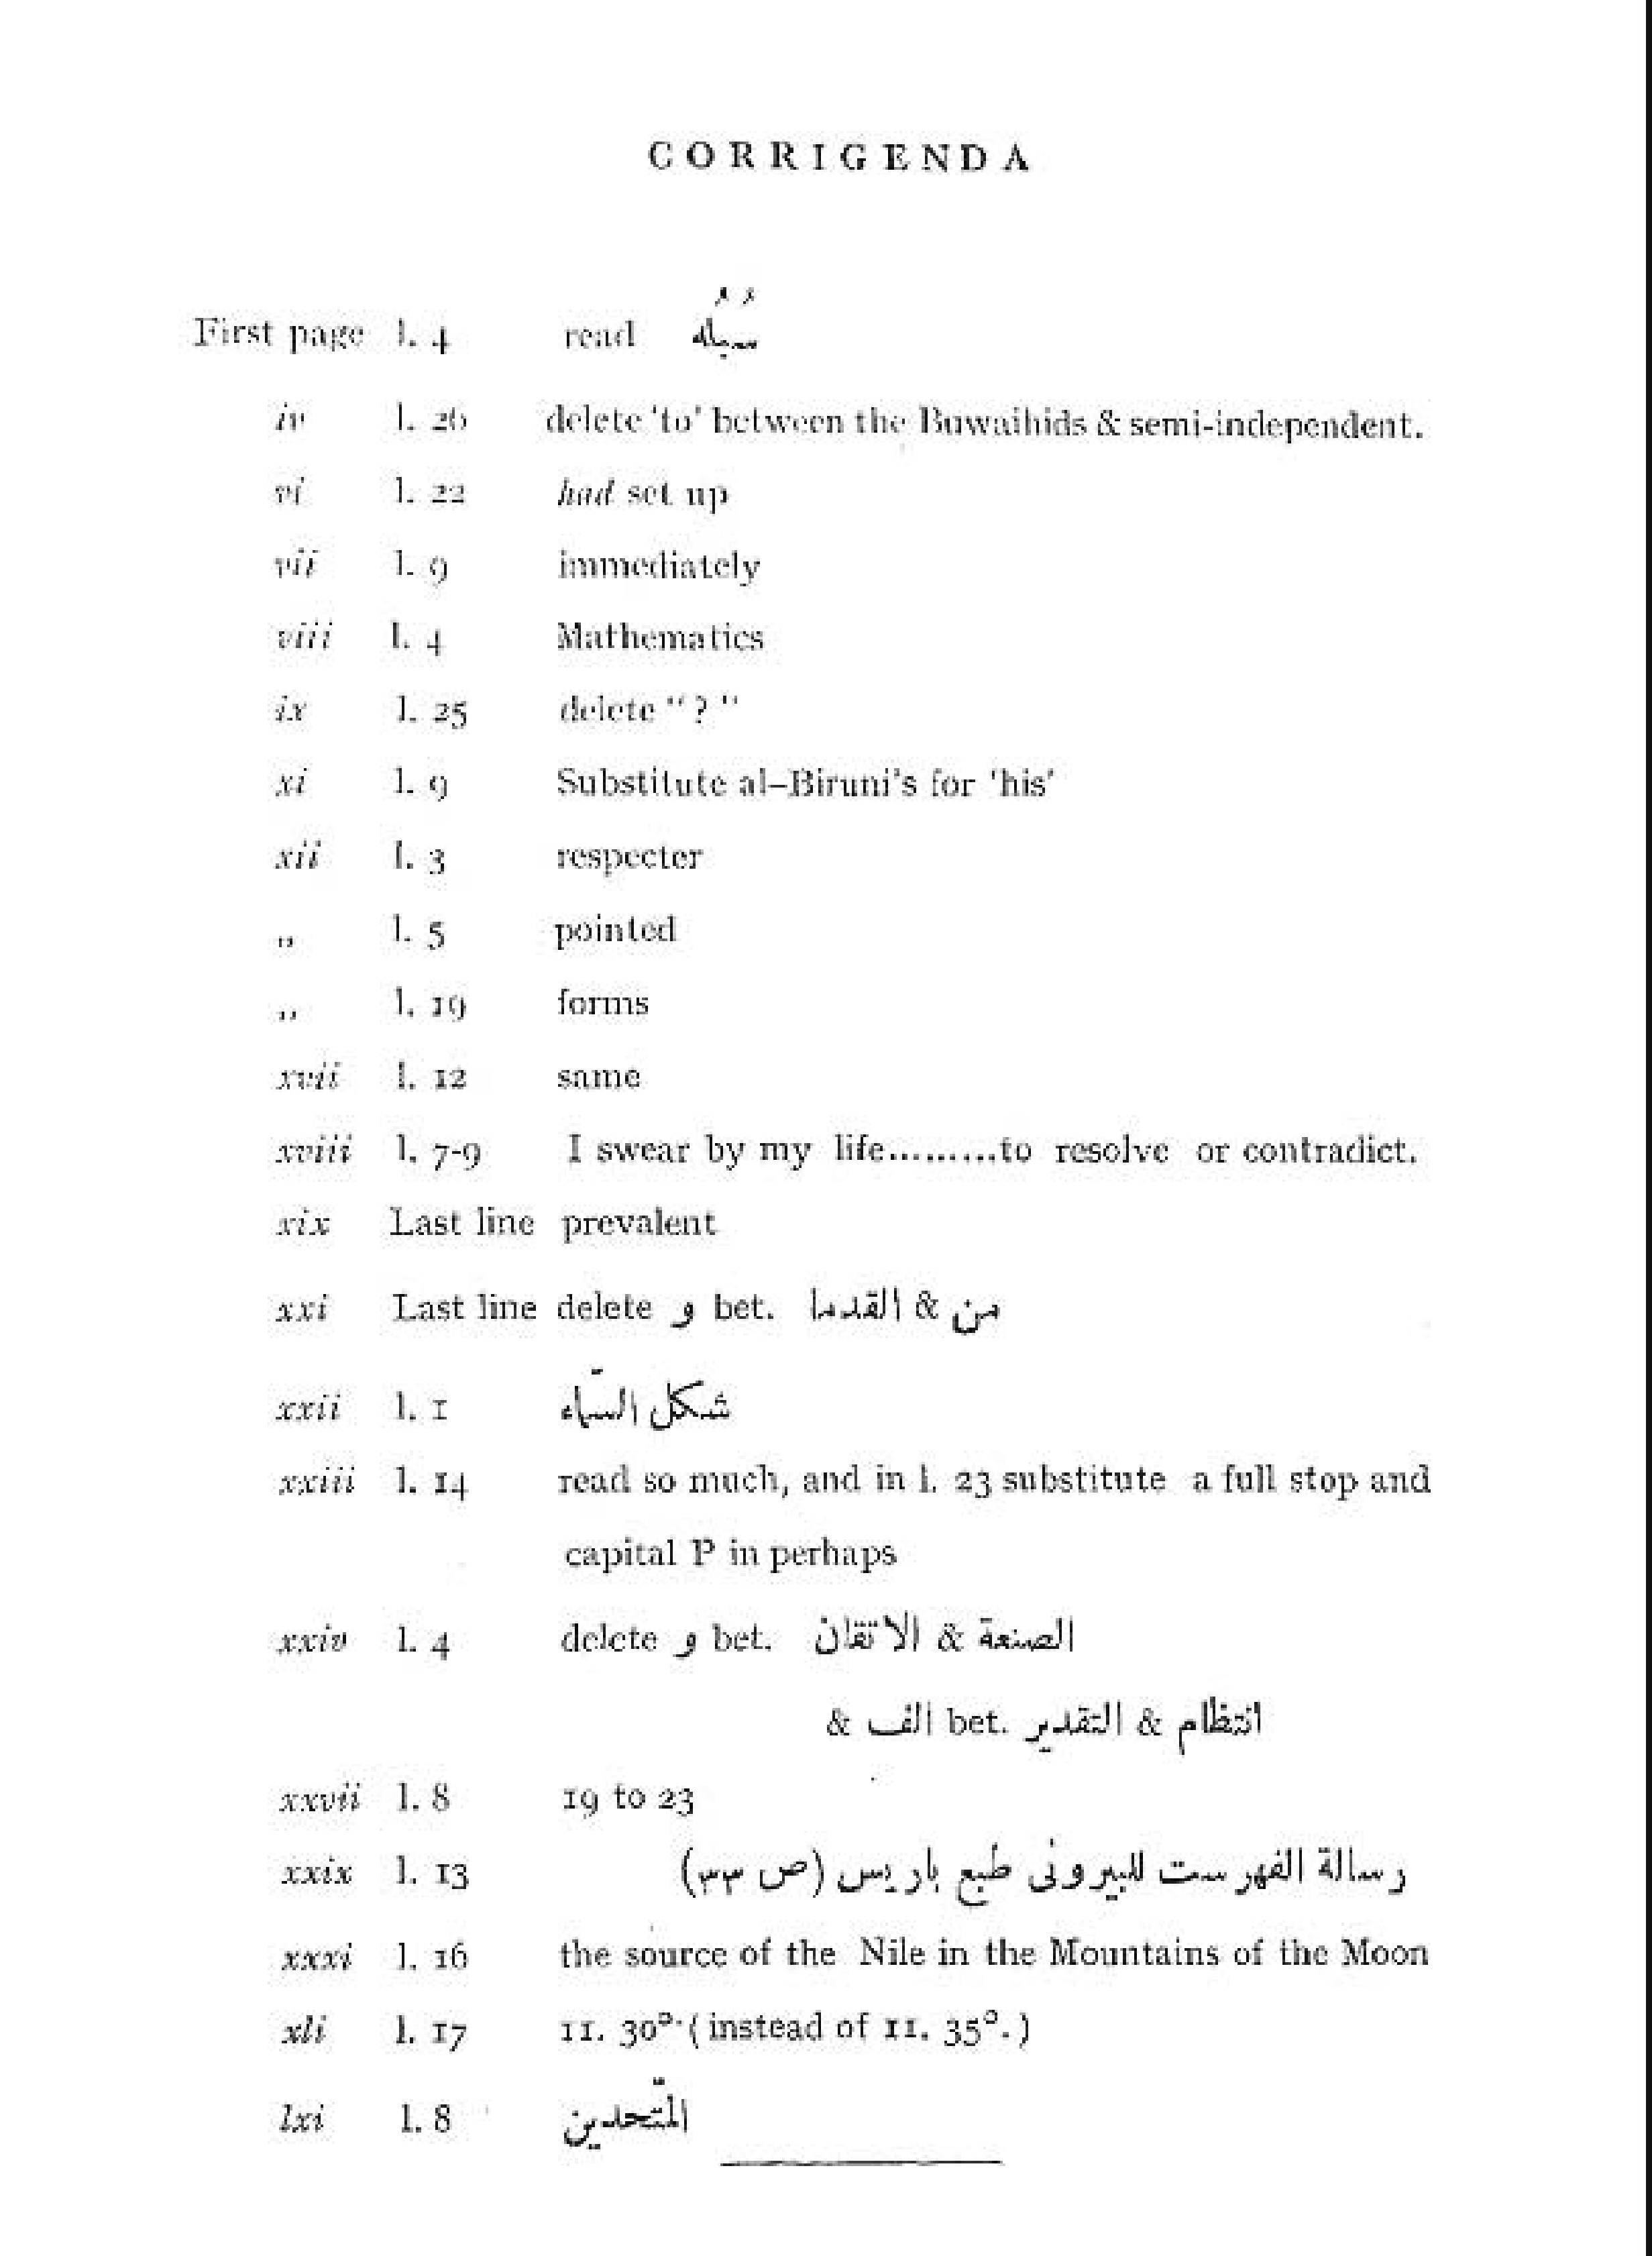 CORRIGENDA
First page l. 4 read سُبُله
iv l. 26 delete 'to' between the Buwaihids & semi-independent.
vi l. 22 had set up
vii l. 9 immediately
viii l. 4 Mathematics
ix l. 25 delete "?"
xi l. 9 Substitute al-Biruni's for 'his'
xii l. 3 respecter
,, l. 5 pointed
,, l. 19 forms
xvii l. 12 same
xviii l. 7-9 I swear by my life.........to resolve or contradict.
xix Last line prevalent
xxi Last line delete و bet. القدما & من
xxii l. 1 شكل السّماء
xxiii l. 14 read so much, and in l. 23 substitute a full stop and
capital P in perhaps
xxiv l. 4 delete و bet. الاتقان & الصنعة
& الف bet. التقدير & انتظام
xxvii l. 8 19 to 23
xxix l. 13 رسالة الفهرست للبيرونى طبع باريس (ص ٣٣)
xxxi l. 16 the source of the Nile in the Mountains of the Moon
xli l. 17 11. 30°. (instead of 11. 35°.)
lxi l. 8 المتّحدين